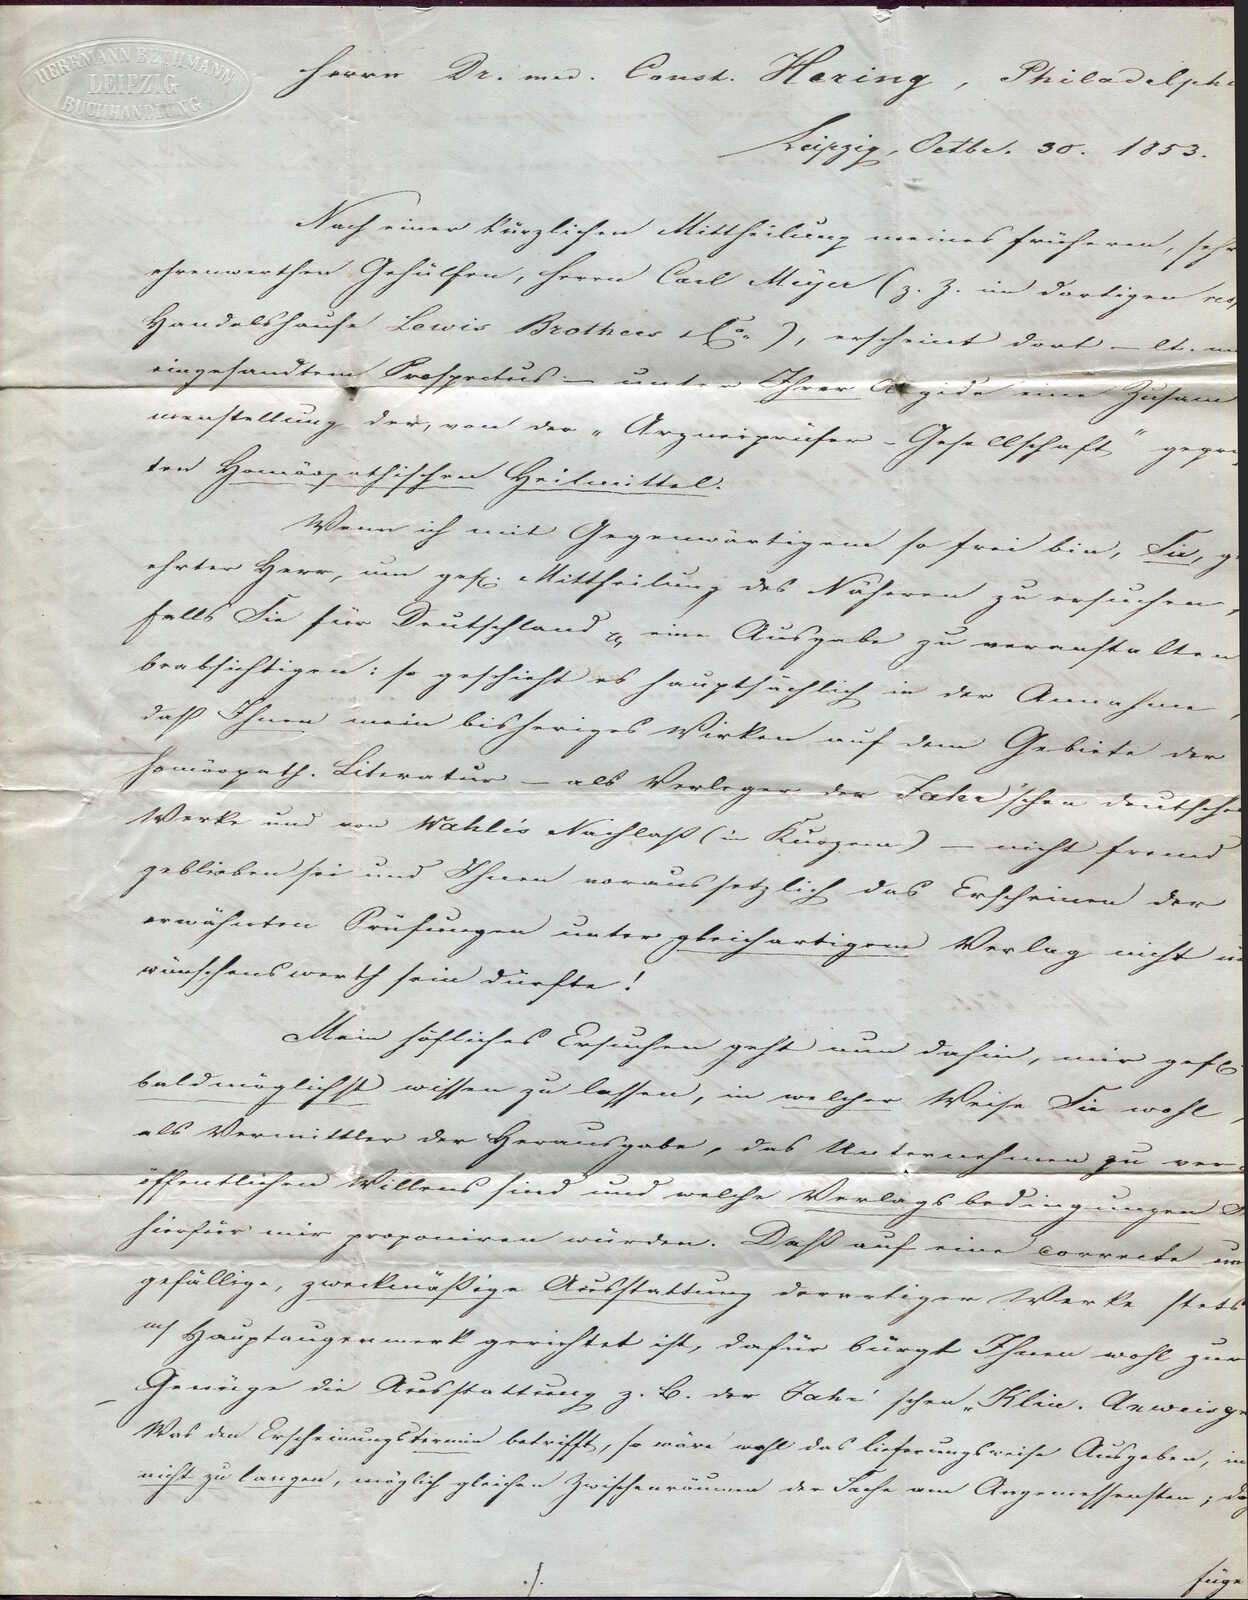 HERRMANN BETHMANN
LEIPZIG
BUCHHANDLUNG
Herrn Dr. med. Const. Hering, Philadelphi
Leipzig, Octbr. 30. 1853.
Nach einer kürzlichen Mittheilung meines früheren, sehr
ehrenwerthen Gehülfen, Herrn Carl Meyer (z. Z. im dortigen resp
Handelshause Lewis Brothers & Co.), erscheint dort – lt. mir
eingesandtem Prospectus – unter Ihrer Aegide eine Zusam
menstellung der, von der „Arzneiprüfer-Gesellschaft" geprüf
ten Homöopathischen Heilmittel.
Wenn ich mit Gegenwärtigem so frei bin, Sie, ge
ehrter Herr, um gef. Mittheilung des Näheren zu ersuchen,
falls Sie für Deutschland eine Ausgabe zu veranstalten
beabsichtigen: so geschieht es hauptsächlich in der Annahme,
daß Ihnen mein bisheriges Wirken auf dem Gebiete der
homöopath. Literatur – als Verleger der Jahr'schen deutschen
Werke und von Wahle's Nachlaß (in Kurzem) – nicht fremd
geblieben sei und Ihnen voraussetzlich das Erscheinen der
erwähnten Prüfungen unter gleichartigem Verlag nicht un
wünschenswerth sein dürfte!
Mein höfliches Ersuchen geht nun dahin, mir gef.
baldmöglichst wissen zu lassen, in welcher Weise Sie wohl,
als Vermittler der Herausgabe, das Unternehmen zu ver
öffentlichen Willens sind und welche Verlagsbedingungen S
hierfür mir proponiren würden. Daß auf eine correcte un
gefällige, zweckmäßige Ausstattung derartiger Werke stets
Hauptaugenmerk gerichtet ist, dafür bürgt Ihnen wohl zur
Genüge die Ausstattung z. B. der Jahr'schen „Klin. Anweisge
Was den Erscheinungstermin betrifft, so wäre wohl das lieferungsweise Ausgeben, in
nicht zu langen, möglich gleichen Zwischenräumen der Sache am Angemessensten; da
./.
füge